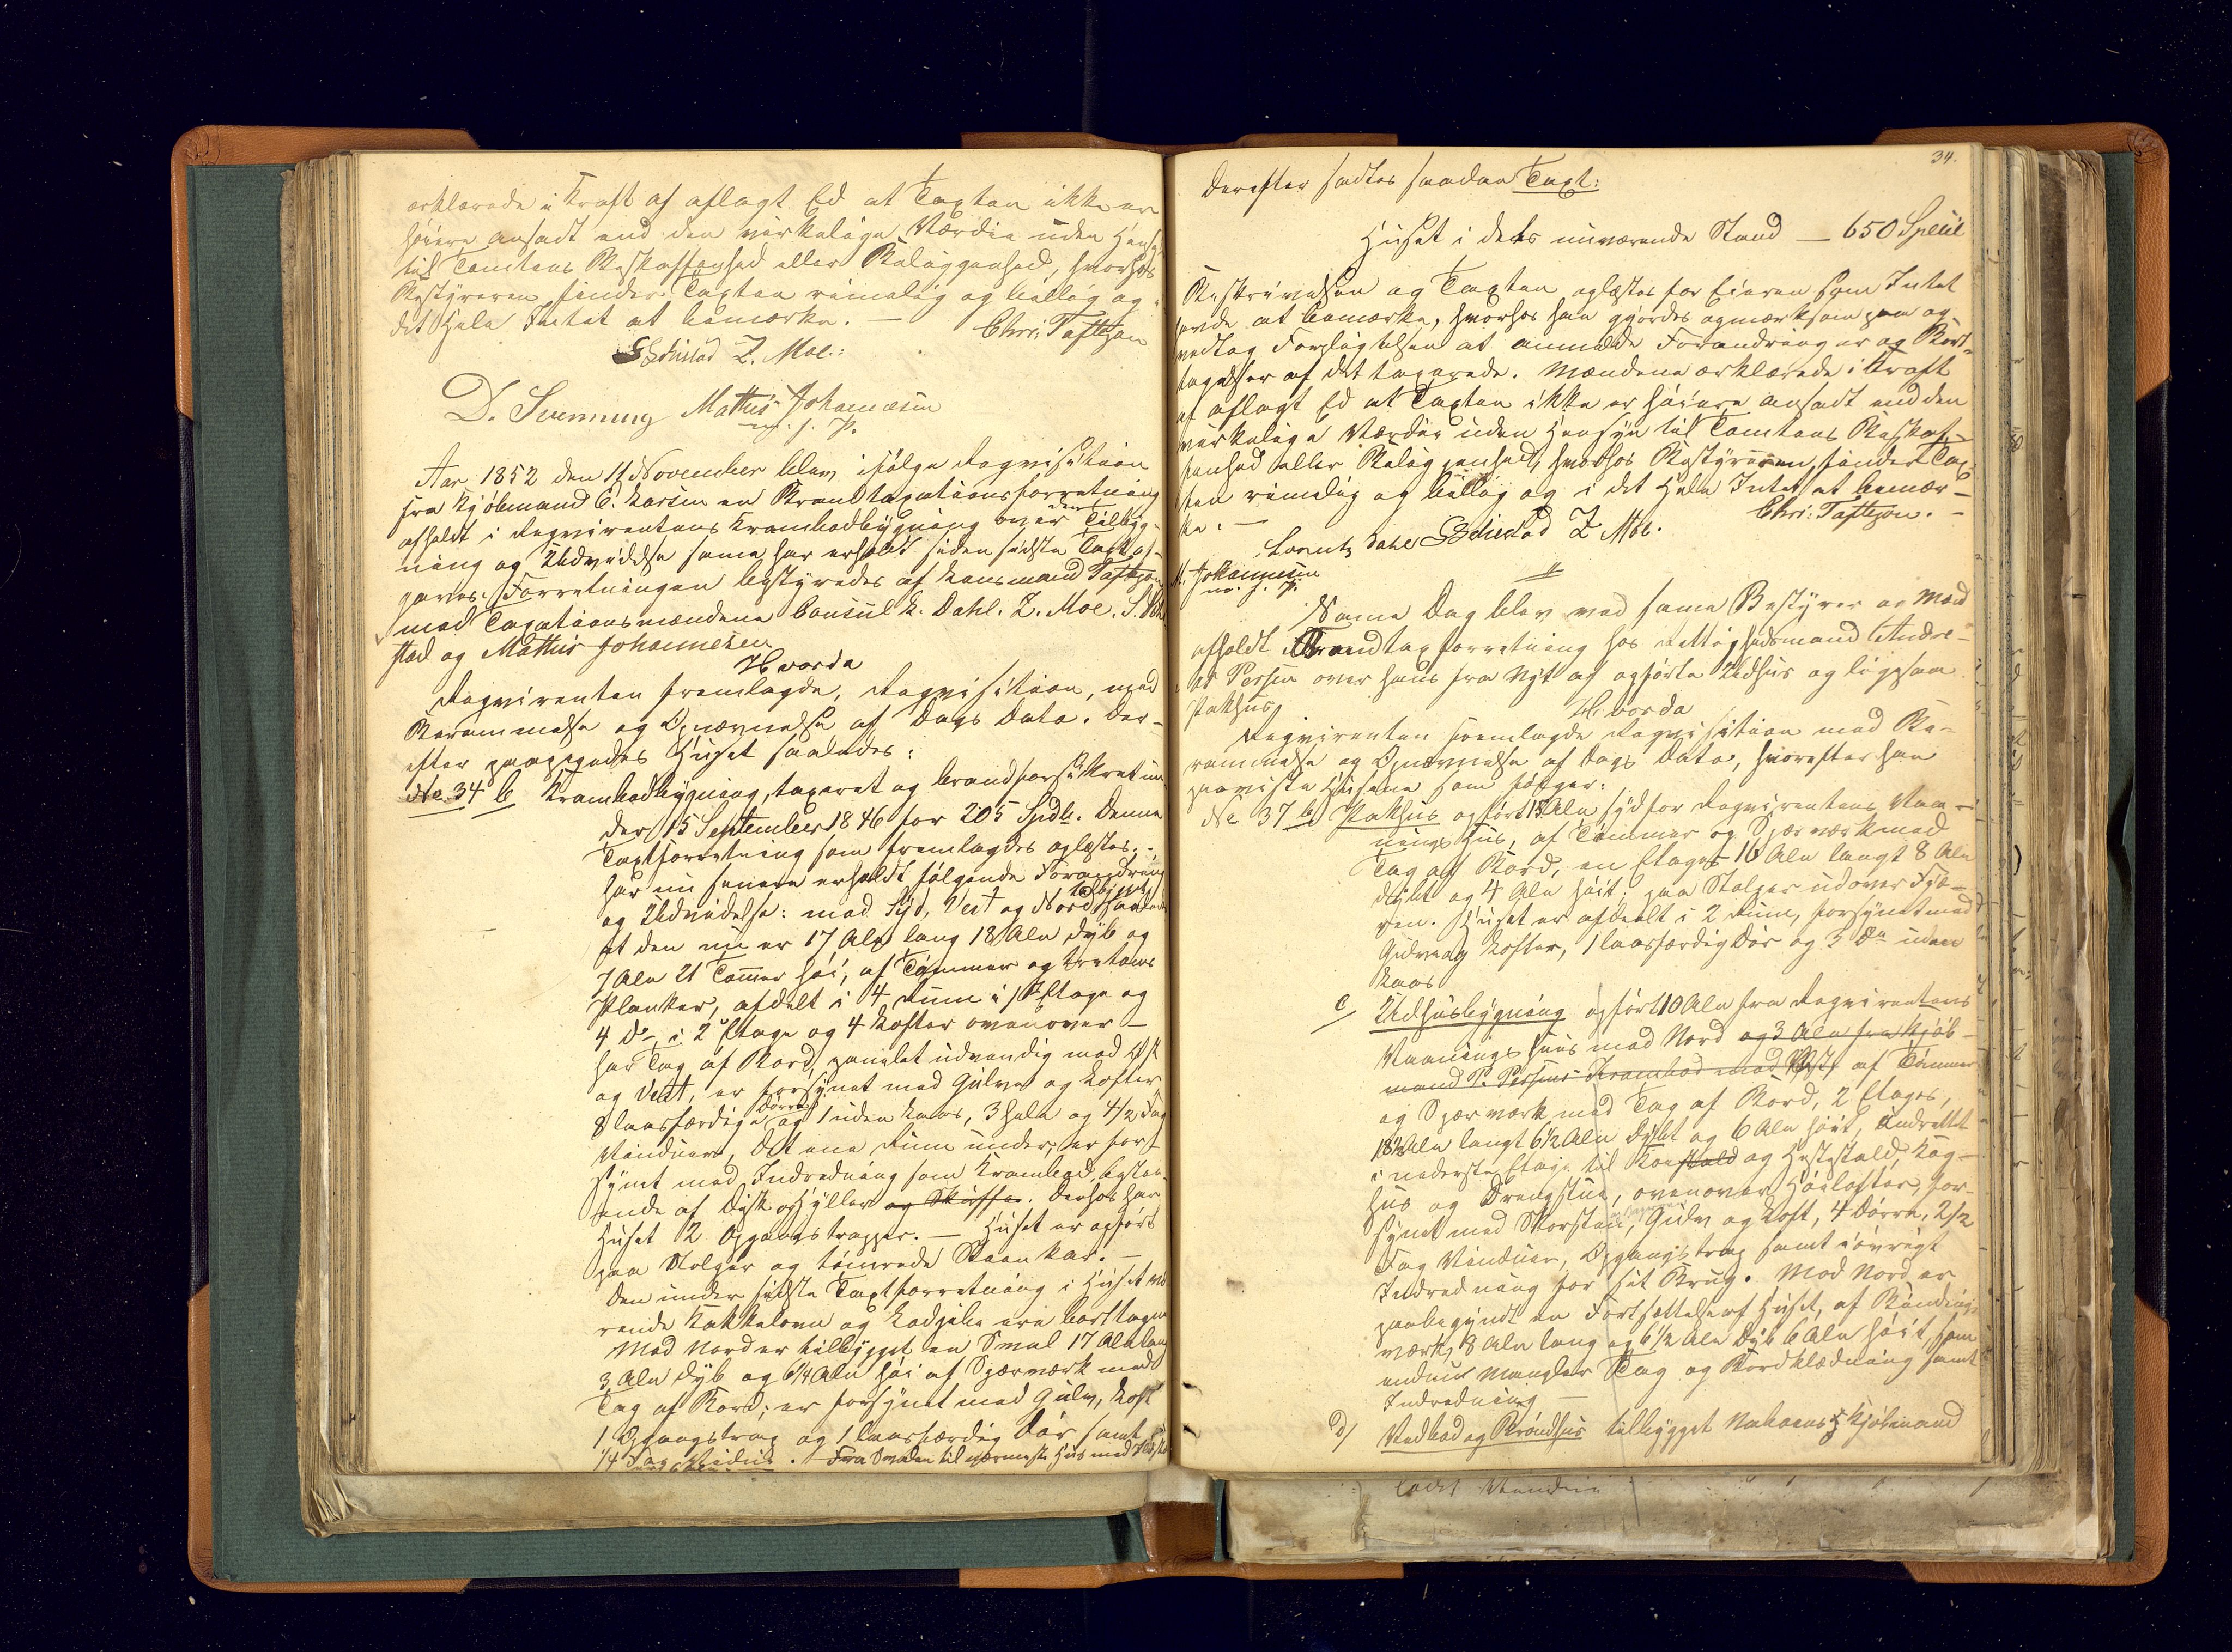 erklærede i Kraft af aflagt Ed at Taxten ikke er
høiere ansadt end den virkelige Værdie uden Hensyn
til Tomtens Beskaffenhed eller Beliggenhed, hvorhos
Bestyreren finder Taxten rimelig og billig og i
det Hele Intet at bemærke. —
Chrs: Taftezon
Schistad Z. Moe.
D. Svenning Mathis Johannesen
m. f. P.
Aar 1852 den 11 November blev ifølge Reqvisition
fra Kjøbmand C. Larsen en Brandtaxationsforretning
afholdt i Reqvirentens Krambodbygning over den Tilbyg-
ning og Udvidelse samme har erholdt siden sidste Taxt af-
gaves. Forretningen bestyredes af Lensmand Taftezon
med Taxationsmændene Consul L. Dahl. Z. Moe. S. Schi-
stad og Mathis Johannesen
Hvorda
Reqvirenten fremlagde, Reqvisition, med
Berammelse og Opnævnelse af Dags Dato. Der-
efter paapegedes Huset saaledes:
No 34 b Krambodbygning, taxeret og brandforsikret un-
der 15 September 1846 for 205 Spdlr. Denne
Taxtforretning som fremlagdes oplæstes, -
har nu senere erholdt følgende Forandring
og Udvidelse: mod Syd, Vest og Nord tilbygget saaledes
at den nu er 17 Alen lang 18 Alen dyb og
7 Alen 21 Tommer høi, af Tømmer og
Planker, afdelt i 4 Rum i 1ste Etage og
4 Do i 2 Etage og 4 Lofter ovenover —
har Tag af Bord, panelet udvendig mod Øst
og Vest, er forsynet med Gulve og Lofter
8 laasfærdige Dørre og 1 uden Laas, 3 hele og 4/2 Fag
Vinduer, Det ene Rum under, er for-
synet med Indredning som Krambod, bestaa-
ende af Disk og Hylder og Skuffer. Derhos har
Huset 2 Opgangstrapper. — Huset er opført
paa Stolper og tømrede Steenkar. —
Den under sidste Taxtforretning i Huset væ-
rende Kakkelovn og ere borttagne
Mod Nord er tilbygget en Sval 17 Alen lang
3 Alen dyb og 6 1/4 Alen høi af Spærværk med
Tag af Bord; er forsynet med Gulv, Loft
1 Opgangstrap og 1 laasfærdig Dør samt
1/4 Fag Vindue. Fra Svalen til nærmeste Hus mod
34.
Derefter sadtes saadan Taxt:
Huset i dets nuværende Stand — 650 Speciel
Beskrivelsen og Taxten oplæstes for Eieren som Intet
havde at bemærke, hvorhos han gjordes opmærksom paa og
vedtog Forpligtelsen at anmelde Forandringer og Bort-
tagelser af det taxerede. Mændene erklærede i Kraft
af aflagt Ed at Taxten ikke er høiere ansadt end den
virkelige Værdie uden Hensyn til Tomtens Beskaf-
fenhed eller Beliggenhed, hvorhos Bestyreren finder Tax-
ten rimelig og billig og i det Hele Intet at bemær-
ke. —
Chrs: Taftezon. —
Lorentz Dahl Schistad Z Moe.
M. Johannesen
m. f. P.
Samme Dag blev ved samme Bestyrer og Mænd
afholdt Brandtaxforretning hos Rettighedsmand Andre-
as Persen over hans fra Nyt af opførte Udhus og ligesaa
Pakhus
Hvorda
Reqvirenten fremlagde Reqvisition med Be-
rammelse og Opnævnelse af Dags Dato, hvorefter han
paaviste Husene som følger:
No 37 b Pakhus opført 15 Alen syd for Reqvirentens Vaa-
nings Hus, af Tømmer og Spærværk med
Tag af Bord, en Etages 16 Alen langt 8 Alen
dybt og 4 Alen høit; paa Stolper udover Fjæ-
ren. Huset er afdelt i 2 Rum, forsynet med
Gulv og Lofter, 1 laasfærdig Dør og 3 Do uden
Laas
c Udhusbygning opført 10 Alen fra Reqvirentens
Vaanings huus mod Nord og 3 Alen fra Kjøb-
mand P. Persens Krambod mod Vest, af Tømmer
og Spærværk med Tag af Bord, 2 Etages,
18 1/2 Alen langt 6 1/2 Alen dybt og 6 Alen høit, indrettet
i nederste Etage til Koestald og Hestestald, Kog-
hus og Drengstue, ovenover Høelofter, for-
synet med Skorsten, Gulv og Loft, 4 Dørre, 2/2
Fag Vinduer, Opgangstrap samt iøvrigt
Indredning for sit Brug. Mod Nord er
paabegyndt en Fortsættelse af Huset, af Bindings-
værk, 8 Alen lang og 6 1/2 Alen dyb 6 Alen høit, som
endnu mangler Tag og Bordklædning samt
Indredning —
d/ Vedbod og Brøndhus tilbygget Kjøbmand